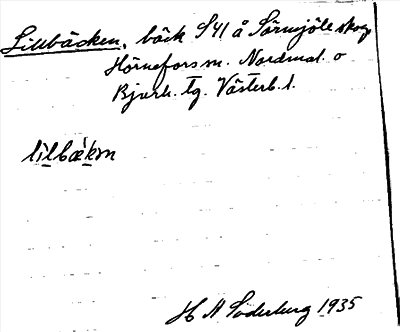 Lillbäcken, bäck S41 å Sörmjöle skog
Hörnefors sn. Nordmal. o
Bjurh. tg. Västerb. l.
lìlbækən
H A Söderberg 1935